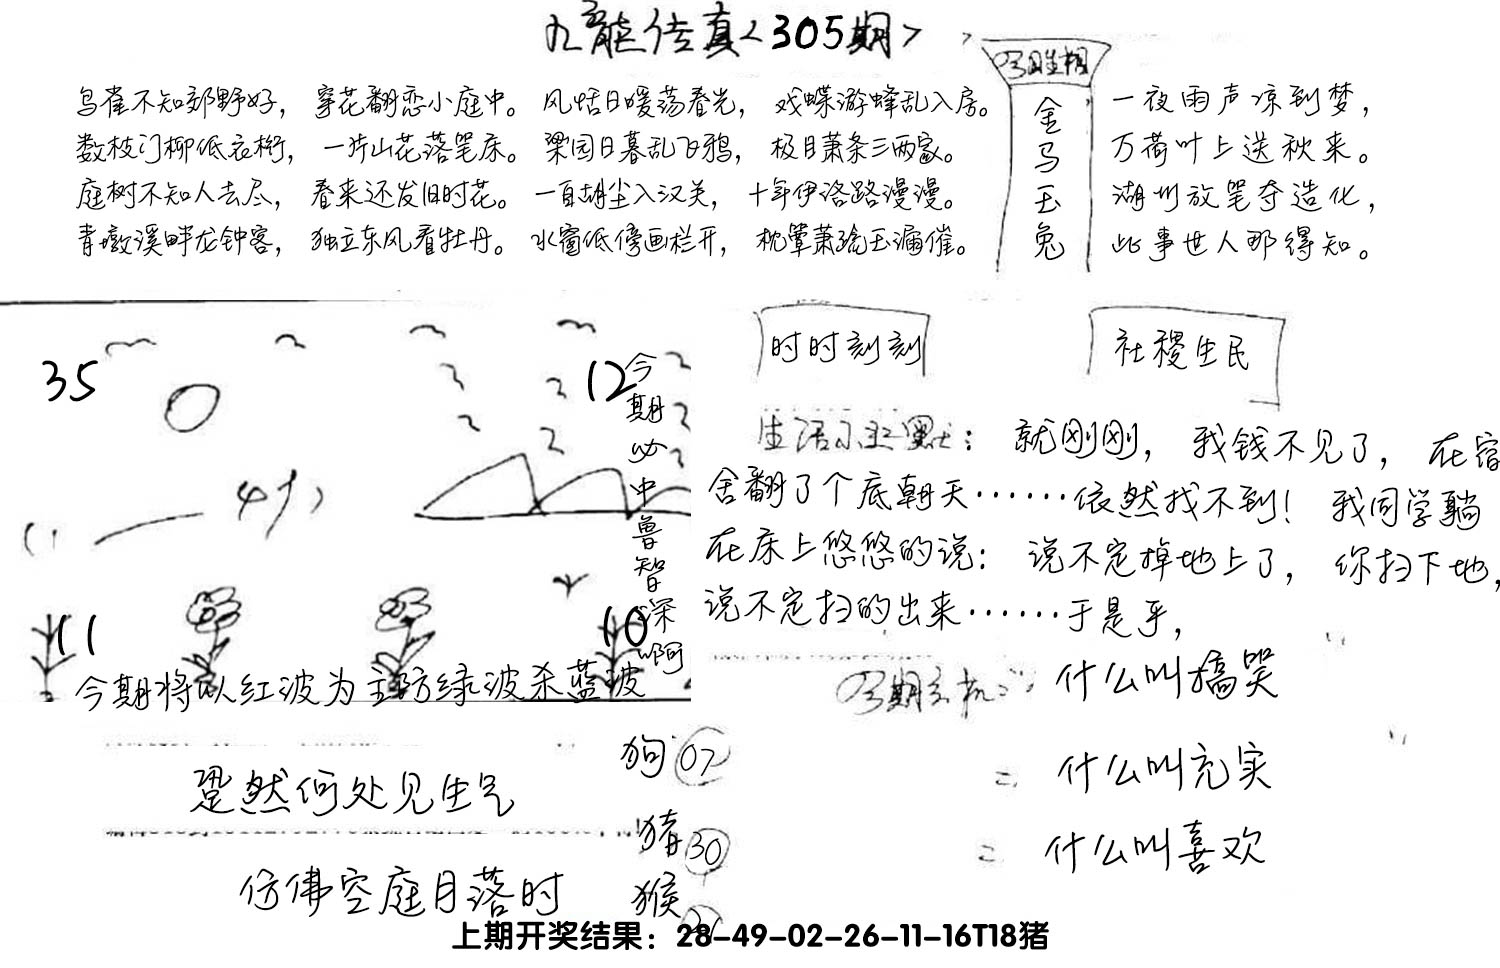 九龙传真<305期>
鸟雀不知郊野好，穿花翻恋小庭中。风恬日暖荡春光，戏蝶游蜂乱入房。
数枝门柳低衣桁，一片山花落笔床。梁园日暮乱飞鸦，极目萧条三两家。
庭树不知人去尽，春来还发旧时花。一自胡尘入汉关，十年伊洛路漫漫。
青墩溪畔龙钟客，独立东风看牡丹。水窗低傍画栏开，枕簟萧疏玉漏催。
金马玉兔
一夜雨声凉到梦，
万荷叶上送秋来。
湖州放笔夺造化，
此事世人那得知。
35
12
11
10
今期必中鲁智深啊
今期将以红波为主防绿波杀蓝波
时时刻刻
社稷生民
生活小幽默：就刚刚，我钱不见了，在宿
舍翻了个底朝天……依然找不到！我同学躺
在床上悠悠的说：说不定掉地上了，你扫下地，
说不定扫的出来……于是乎，
什么叫搞笑
什么叫充实
什么叫喜欢
跫然何处见生气
仿佛空庭月落时
狗 07
猪 30
猴
上期开奖结果：28-49-02-26-11-16T18猪